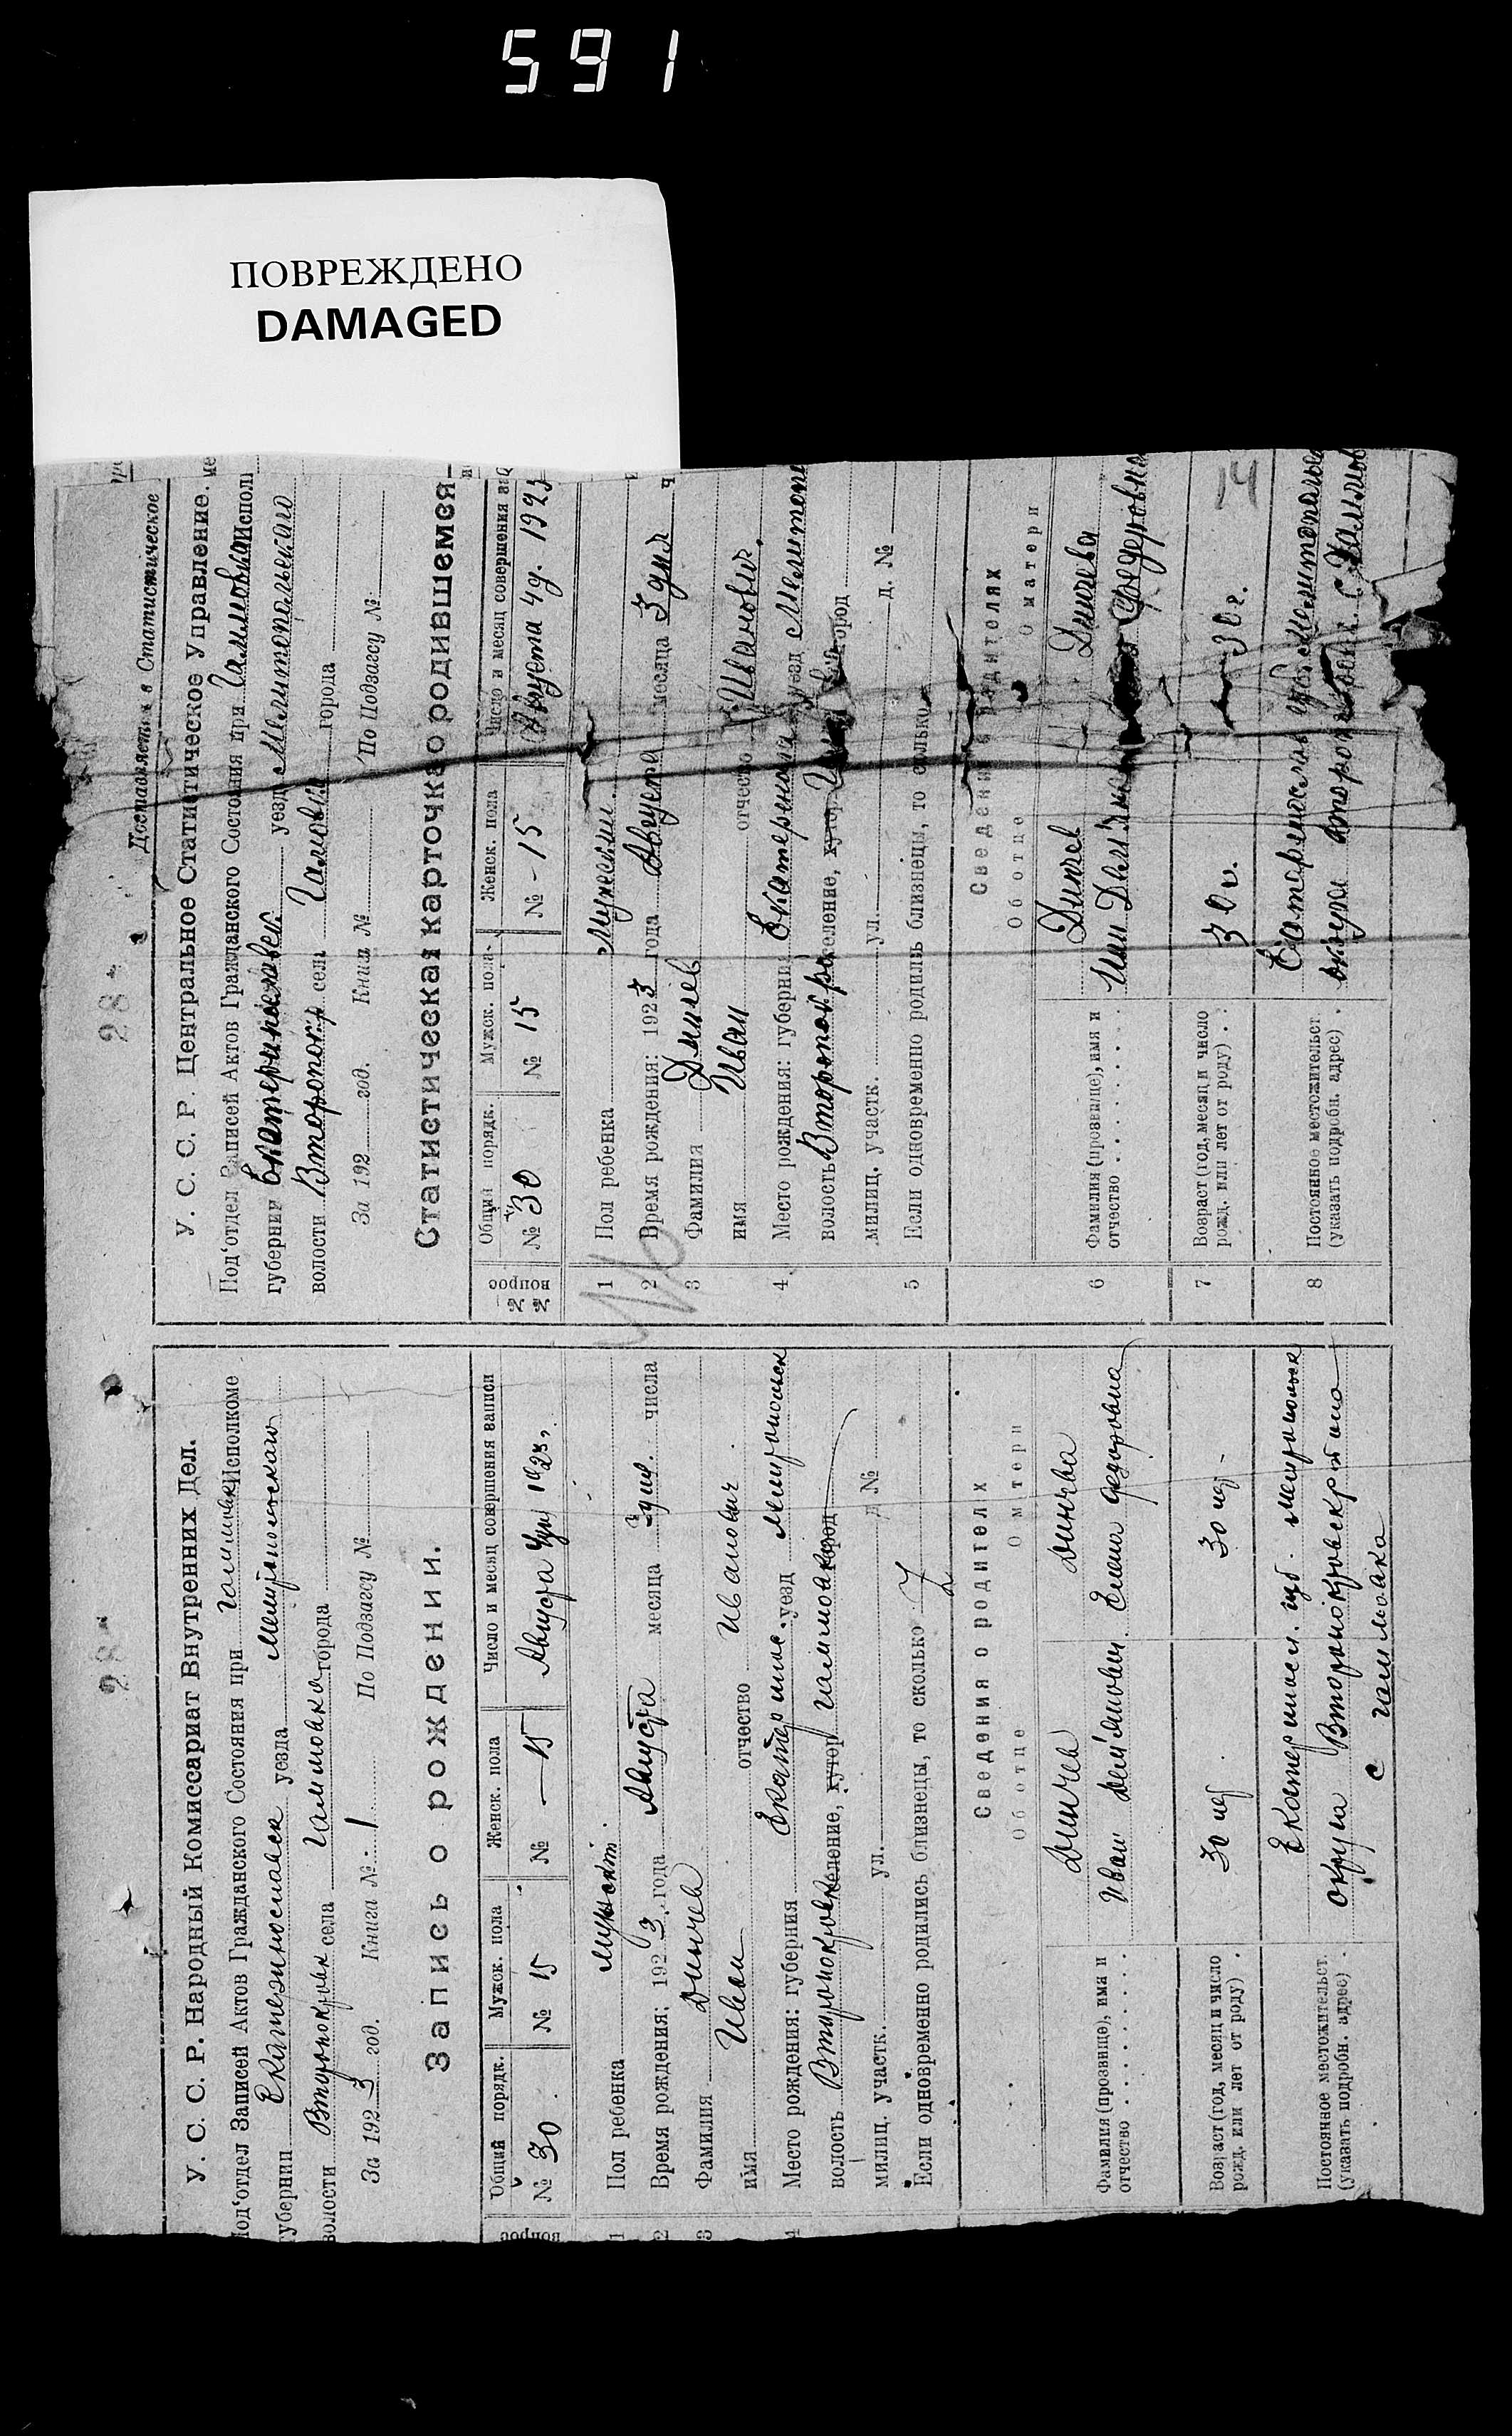 591
ПОВРЕЖДЕНО
DAMAGED
28
У. С. С. Р. Народный Комиссариат Внутренних Дел.
Под'отдел Записей Актов Гражданского Состояния при Гаммовск Исполкоме
губернии Екатеринославск уезда Мелитопольского
волости Второпокровск села Гаммовка города
За 192 3 год. Книга № 1 По Подзагсу №
Запись о рождении.
вопрос Общий порядк. Мужск. пола Женск. пола Число и месяц совершения записи
№ 30 № 15 № — 15 Августа 4 дн 1923.
1 Пол ребенка мужской
2 Время рождения: 192 3 года Августа месяца 3 дня. числа
3 Фамилия Динчев
имя Иван отчество Иванович
4 Место рождения: губерния Екатеринос. уезд Мелитопольск
волость Второпокровск селение, хутор Гаммовка город
милиц. участк. ул. д №
Если одновременно родились близнецы, то сколько
Сведения о родителях
Об отце О м тери
Фамилия (прозвище), имя и отчество Динчев Динчева
Иван Демянович Елена Федоровна
Возраст (год, месяц и число рожд. или лет от роду) 30 лет 30 лет
Постоянное местожительст. (указать подробн. адрес) Екатериносл. губ. Мелитопольск
округа Второпокровск района
с Гаммовка
28
Доставляется в Статистическое
У. С. С. Р. Центральное Статистическое Управление.
Под'отдел Записей Актов Гражданского Состояния при Гаммовка Испол
губернии Екатеринославск уезд Мелитопольского
волости Второпокр села Гамовка города
За 192 год. Книга № По Подзагсу №
Статистическая карточка о родившемся
№№ вопрос Общий порядк. Мужск. пола Женск. пола Число и месяц совершения за
№ 30 № 15 № - 15 Августа 4 д. 1923
1 Пол ребенка Мужеский
2 Время рождения: 192 3 года Августа месяца 3 дня ч
3 Фамилия Динчев
имя Иван отчество Иванович.
4 Место рождения: губерни Екатериносла уезд Мелитопо
волость Второпокро селение, хутор город
милиц. участк. ул. д. №
5 Если одновременно родиль близнецы, то сколько
Сведения о родителях
Об отце О матери
6 Фамилия (прозвище), имя и отчество Динчев Динчева
Иван Демян Федоровна
7 Возраст (год, месяц и число рожд. или лет от роду) 30 л. 30 г. 14
8 Постоянное местожительст. (указать подробн. адрес) Екатеринослав губ. Мелитополь
округа второпок